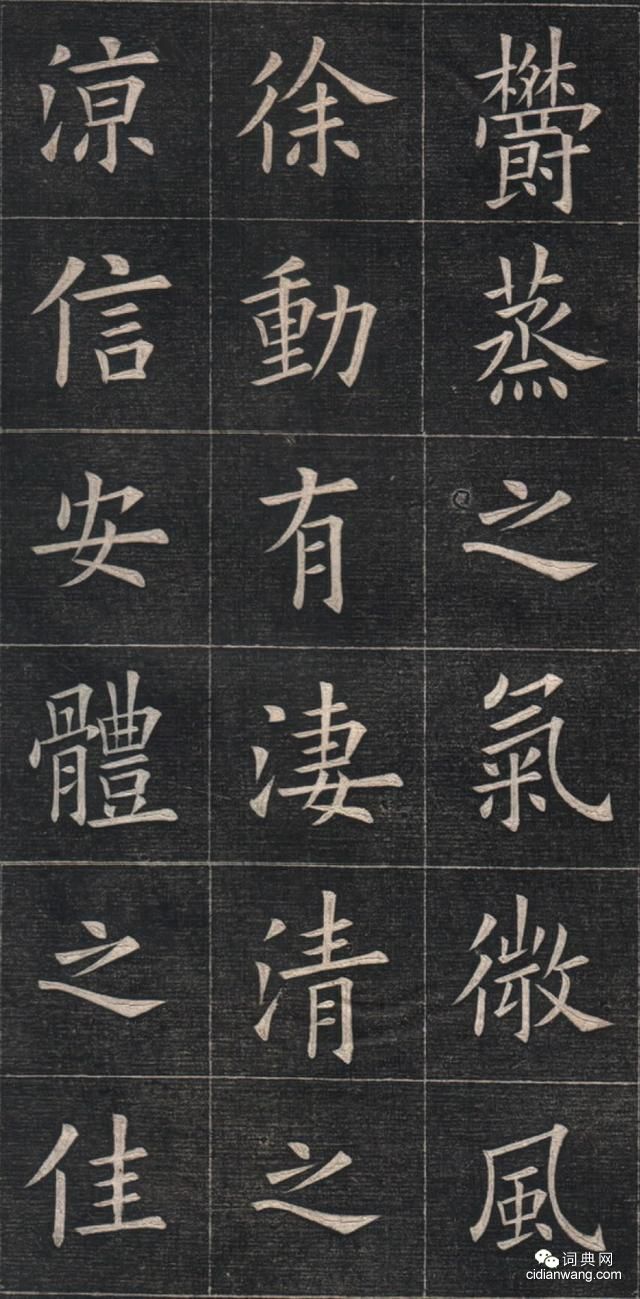 欝蒸之氣微風
徐動有淒清之
涼信安體之佳
词典网
cidianwang.com